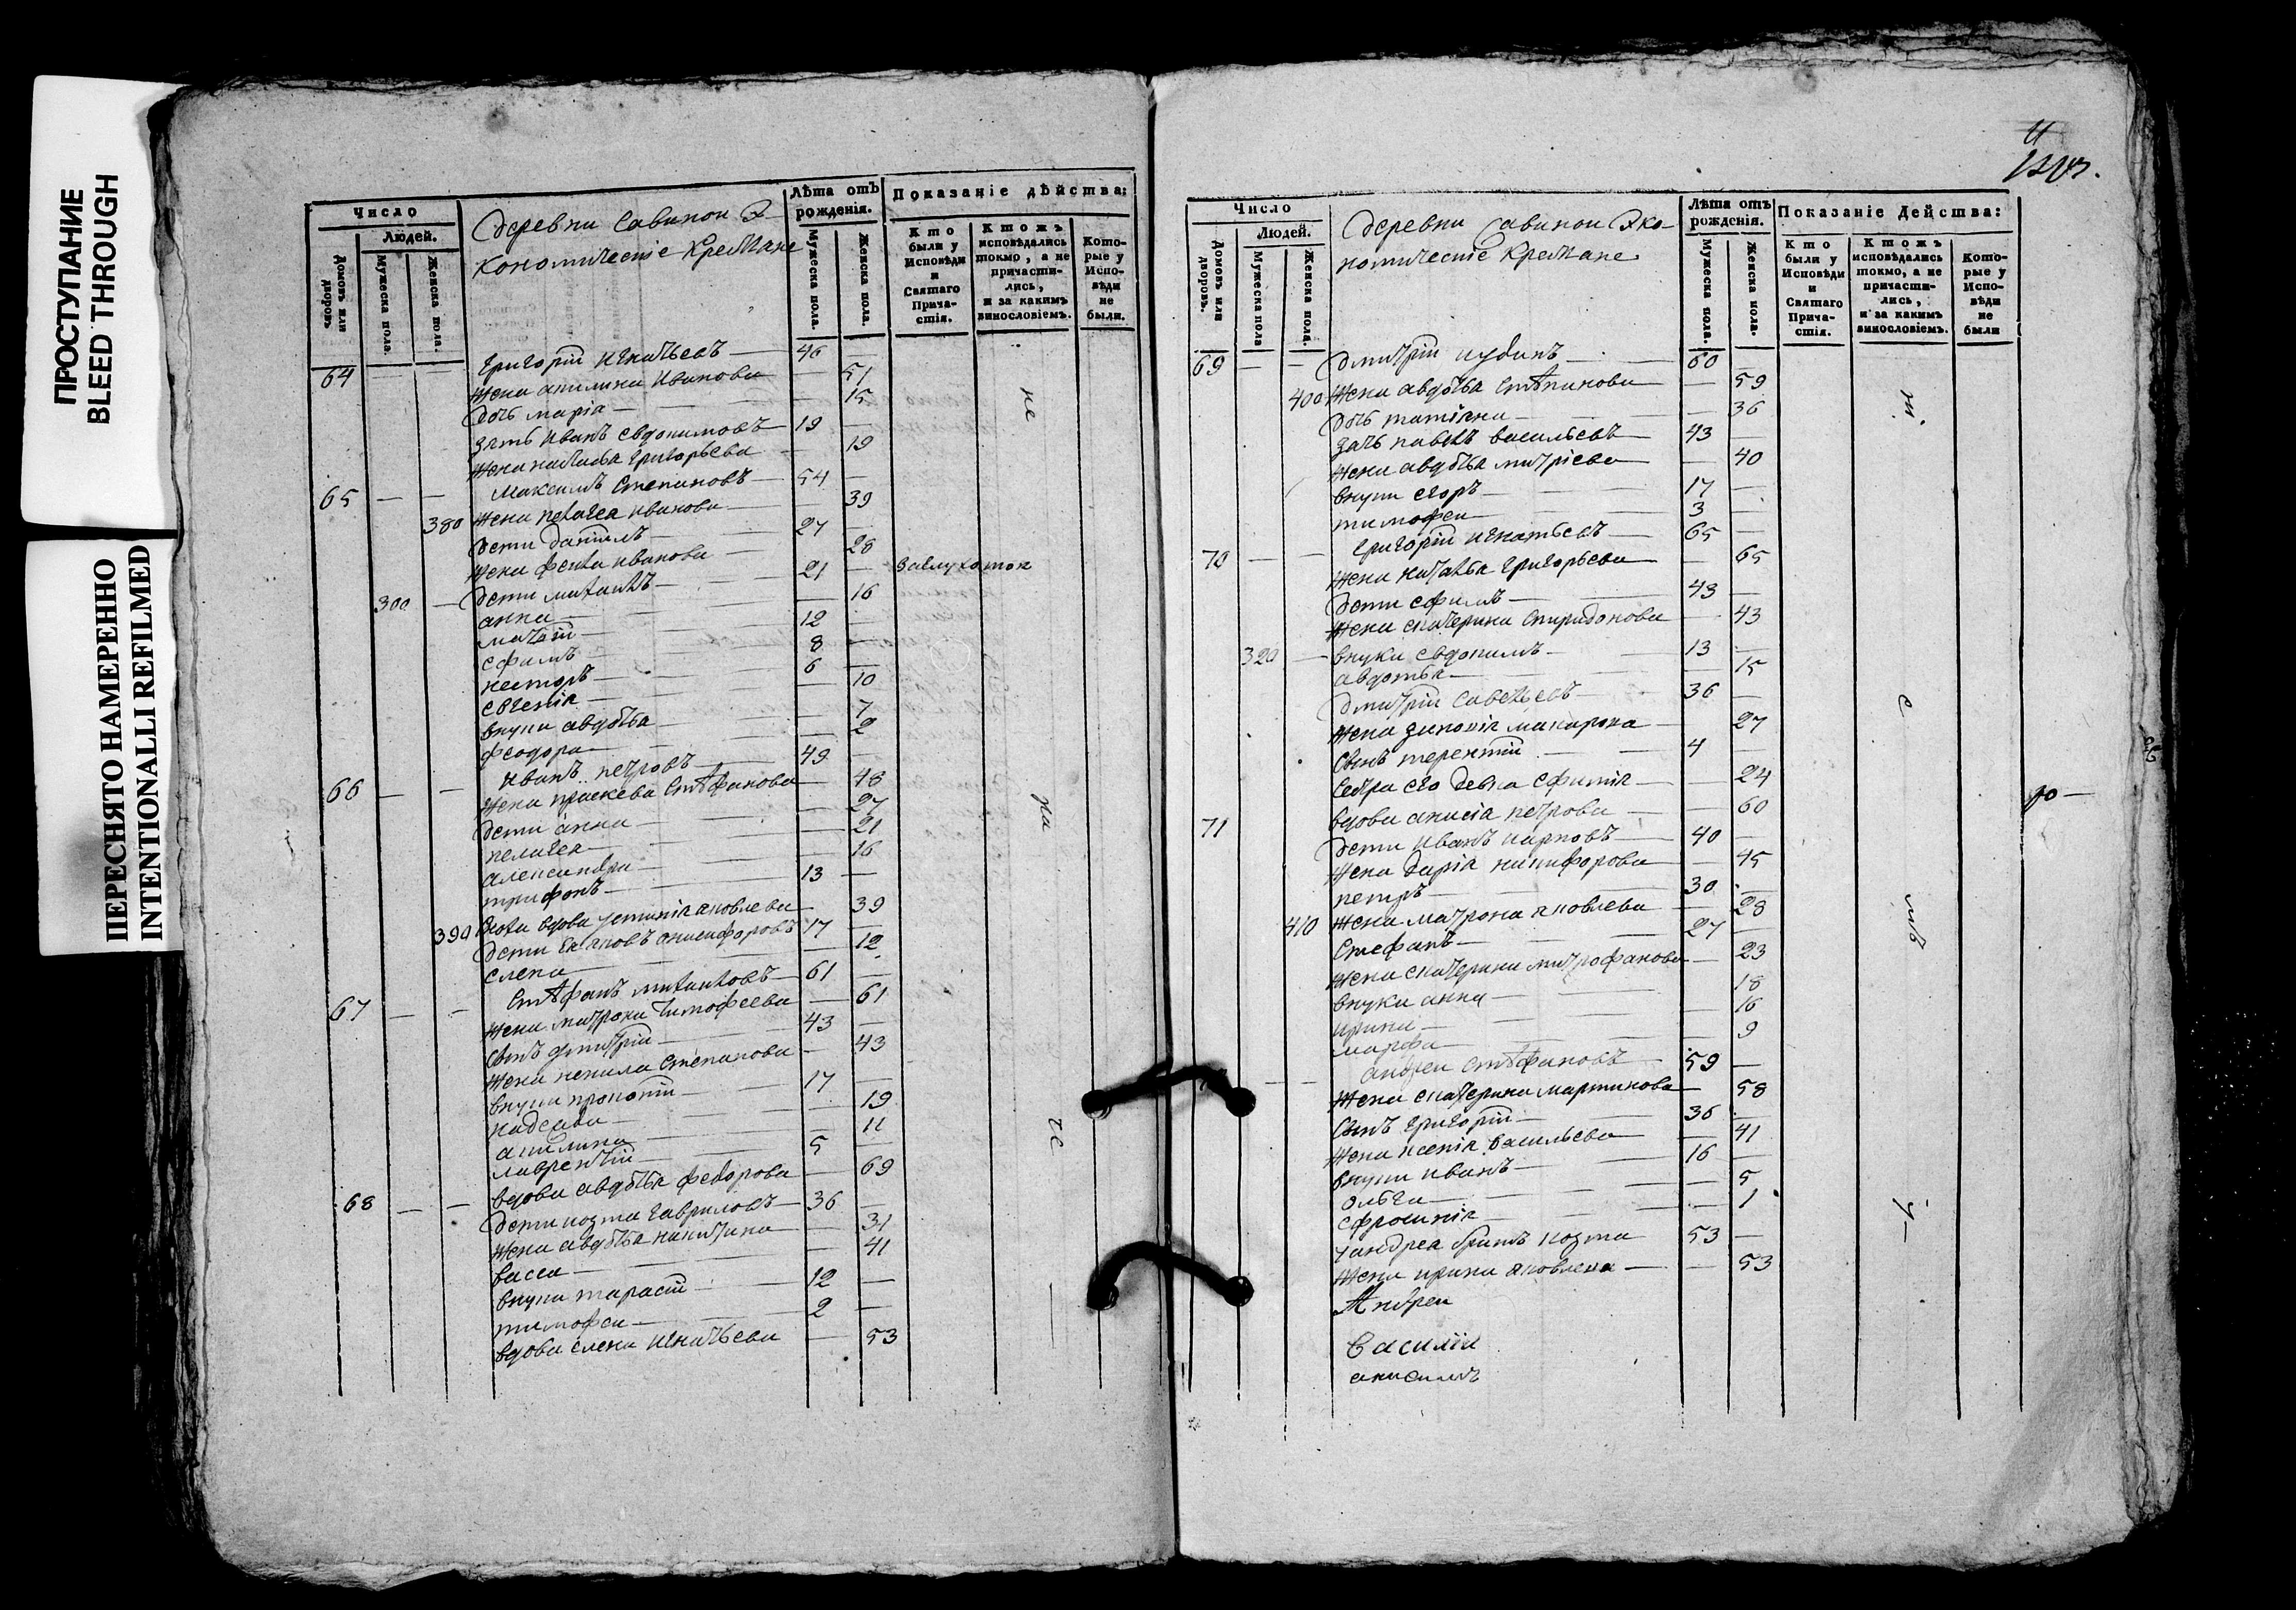 ПРОСТУПАНИЕ
BLEED THROUGH
ПЕРЕСНЯТО НАМЕРЕННО
INTENTIONALLI REFILMED
Число
Людей.
Домовъ или дворовъ
Мужеска пола.
Женска пола.
деревни Савинои Э-
кономическіе Крестіане
Лѣта отъ рожденія.
Мужеска пола.
Женска пола.
Показаніе дѣйства:
Кто были у Исповѣди и Святаго Прича-стія.
Ктожъ исповѣдались токмо, а не причасти-лись, и за какимъ винословіемъ.
Кото-рые у Испо-вѣди не были.
64 — — григоріи игнатьевъ — 46 —
жена акилина иванова — 51
дочь маріа — 15
зять иванъ евдокимовъ — 19 —
жена наталья григорьева — 19
65 — — максимъ степановъ — 54 —
380 жена пелагея иванова — 39
дети даніилъ — 27 —
жена фекла иванова — 28
300 — дети михаилъ — 21 — заглухотои
анна — 16
матвіи — 12 —
ефимъ — 8 —
несторъ — 6 —
евгенія — 10
внуки авдотья — 7
феодора — 2
66 — — иванъ петровъ — 49 —
жена праскева стефанова — 48
дети анна — 27
пелагея — 21
александра — 16
трифонъ — 13 —
390 вдова устинія яковлева — 39
дети анисифоровъ 17 —
елена — 12
67 — — Стефанъ михаиловъ — 61 —
жена матрона тимофеева — 61
сынъ дмитріи — 43 —
жена ненила степанова — 43
внуки прокопіи — 17 —
надежда — 19
акилина — 11
лаврентіи — 5 —
68 — — вдова авдотья федорова — 69
дети козма гавриловъ — 36 —
жена авдотья никитина — 31
васса — 41
внуки тарасіи — 12 —
тимофеи — 2 —
вдова елена игнатьева — 53
не
ра
че
Число
Людей.
Домовъ или дворовъ.
Мужеска пола
Женска пола.
деревни Савинои Эко-
номическіе Крестіане
Лѣта отъ рожденія.
Мужеска пола.
Женска пола.
Показаніе Дейсмва:
Кто были у Исповѣди и Святаго Прича-стія.
Ктожъ исповѣдались токмо, а не причасти-лись, и за какимъ винословіемъ.
Кото-рые у Испо-вѣди не были
69 — — дмитріи иудинъ — 60 —
400 жена авдотья степанова — 59
дочь татіяна — 36
зять павелъ васильевъ — 43 —
жена авдотья митріева — 40
внуки егоръ — 17 —
тимофеи — 3 —
70 — — григоріи игнатьевъ — 65 —
жена наталья григорьева — 65
дети ефимъ — 43 —
жена екатерина спиридонова — 43
320 — внуки евдокимъ — 13 —
авдотья — 15
дмитріи савельевъ — 36 —
жена зиновія макарова — 27
сынъ терентіи — 4 —
сестра его девка ефимія — 24
71 вдова анисіа петрова — 60
дети иванъ карповъ — 40 —
жена дарія никифорова — 45
петръ — 30 —
410 жена матрона яковлева — 28
стефанъ — 27 —
жена екатерина митрофанова — 23
внуки анна — 18
ирина — 16
марфа — 9
— — андреи стефановъ — 59 —
жена екатерина мартинова — 58
сынъ григоріи — 36 —
жена ксенія васильева — 41
внуки иванъ — 16 —
ольга — 5
ефросинія — 1
у андреа братъ козма 53 —
жена ирина яковлева — 53
Андреи
Василіи
анисимъ
е
мъ
ро—